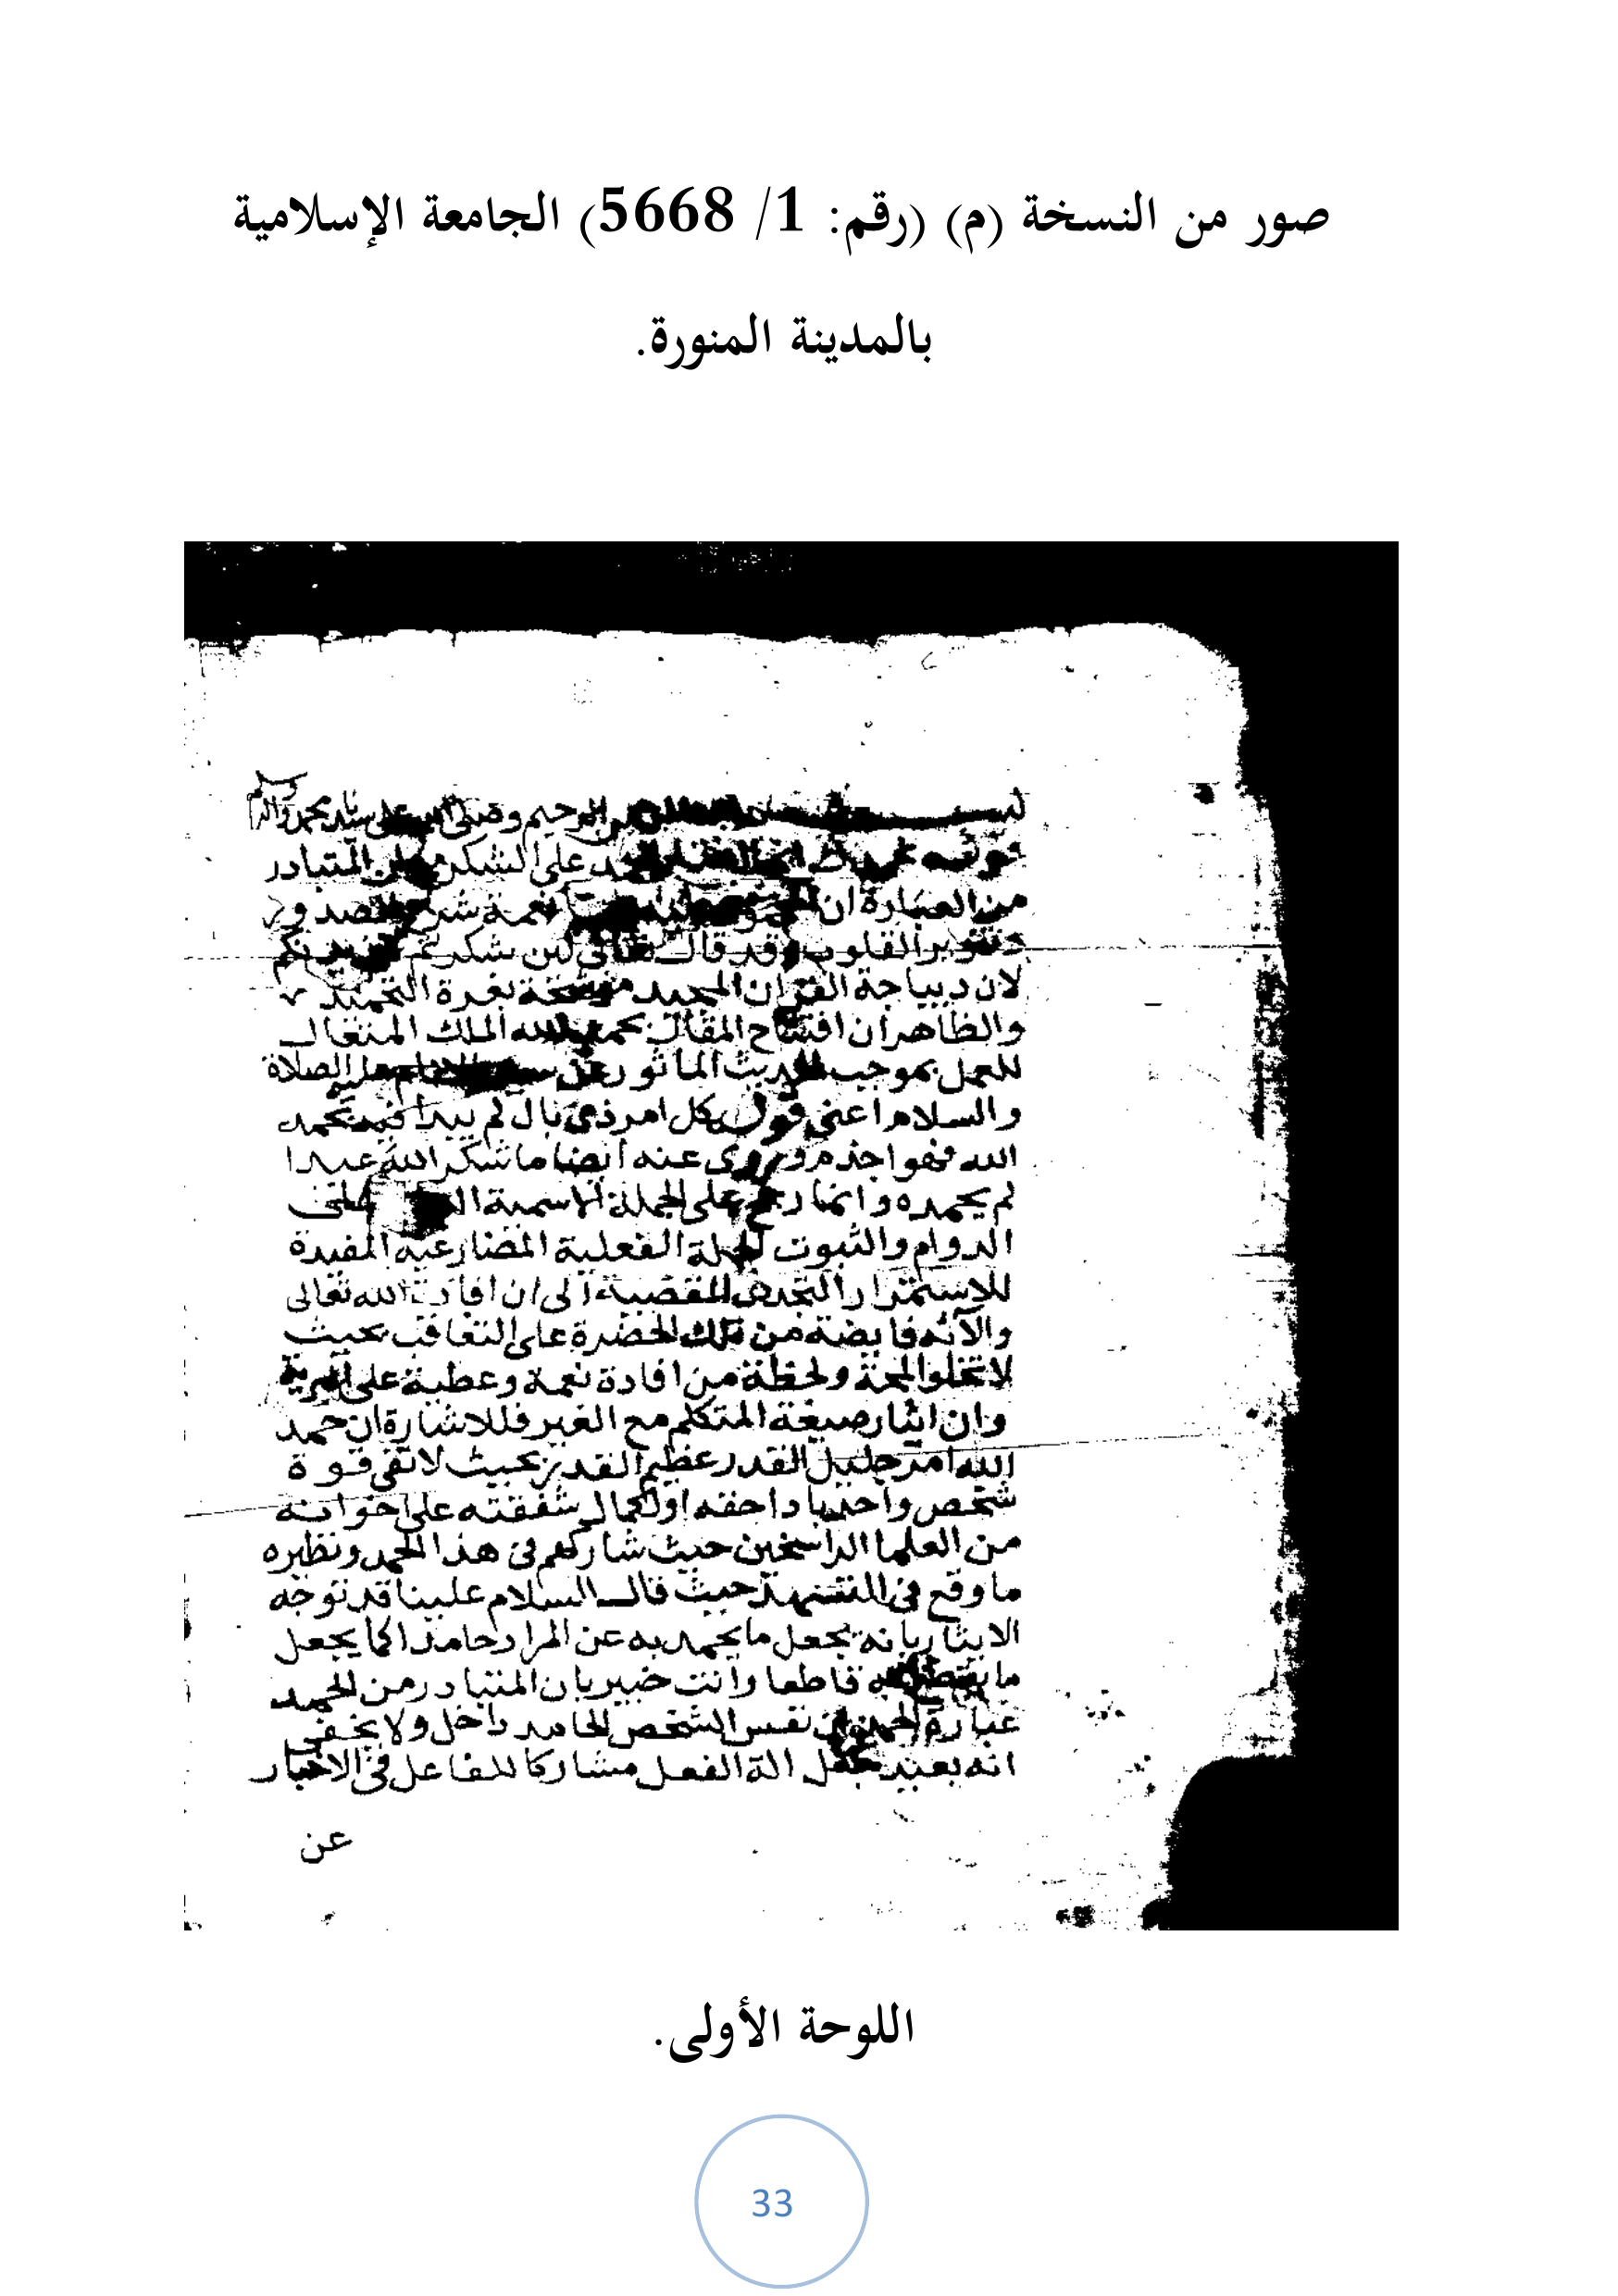 صور من النسخة (م) (رقم: 1/ 5668) الجامعة الإسلامية
بالمدينة المنورة.
الرحيم وصلى الله على سيدنا محمد واله وسلم
على الشكر المتبادر
من العبارة ان نعمة
القلوب وقد قال تعالى لئن شكرتم لازيدنكم
لان ديباجة القران المجيد موشحة بغرة التحميد
والظاهر ان افتتاح المقال بحمد الله الملك المتعال
للعمل بموجب الحديث الماثور عن الصلاة
والسلام اعنى قوله كل امر ذى بال لم يبدا فيه بحمد
الله فهو اجذم وروى عنه ايضا ما شكر الله عبدا
لم يحمده وانما رجح على الجملة الاسمية
الدوام والثبوت الجملة الفعلية المضارعية المفيدة
للاستمرار التجددى المقصية الى ان افادة الله تعالى
والآئه فايضة من تلك الحضرة على التعاقب بحيث
لا تخلوا لمحة ولحظة من افادة نعمة وعطية على البرية
وان ايثار صيغة المتكلم مع الغير فللاشارة ان حمد
الله امر جليل القدر عظيم القدر بحيث لا تفى قوة
شخص واحد باداء حقه او لكمال شفقته على اخوانه
من العلما الراسخين حيث شاركهم فى هذا الحمد ونظيره
ما وقع فى التشهد حيث قال السلام علينا قد توجه
الايثار بانه يجعل ما يحمد به عن المراد حامدا كما يجعل
ما يقطع به قاطعا وانت خبير بان المتبادر من الحمد
عبارة نفس الشخص الحامد داخل ولا يخفى
انه بعيد جعل الة الفعل مشاركا للفاعل فى الاخبار
عن
اللوحة الأولى.
33